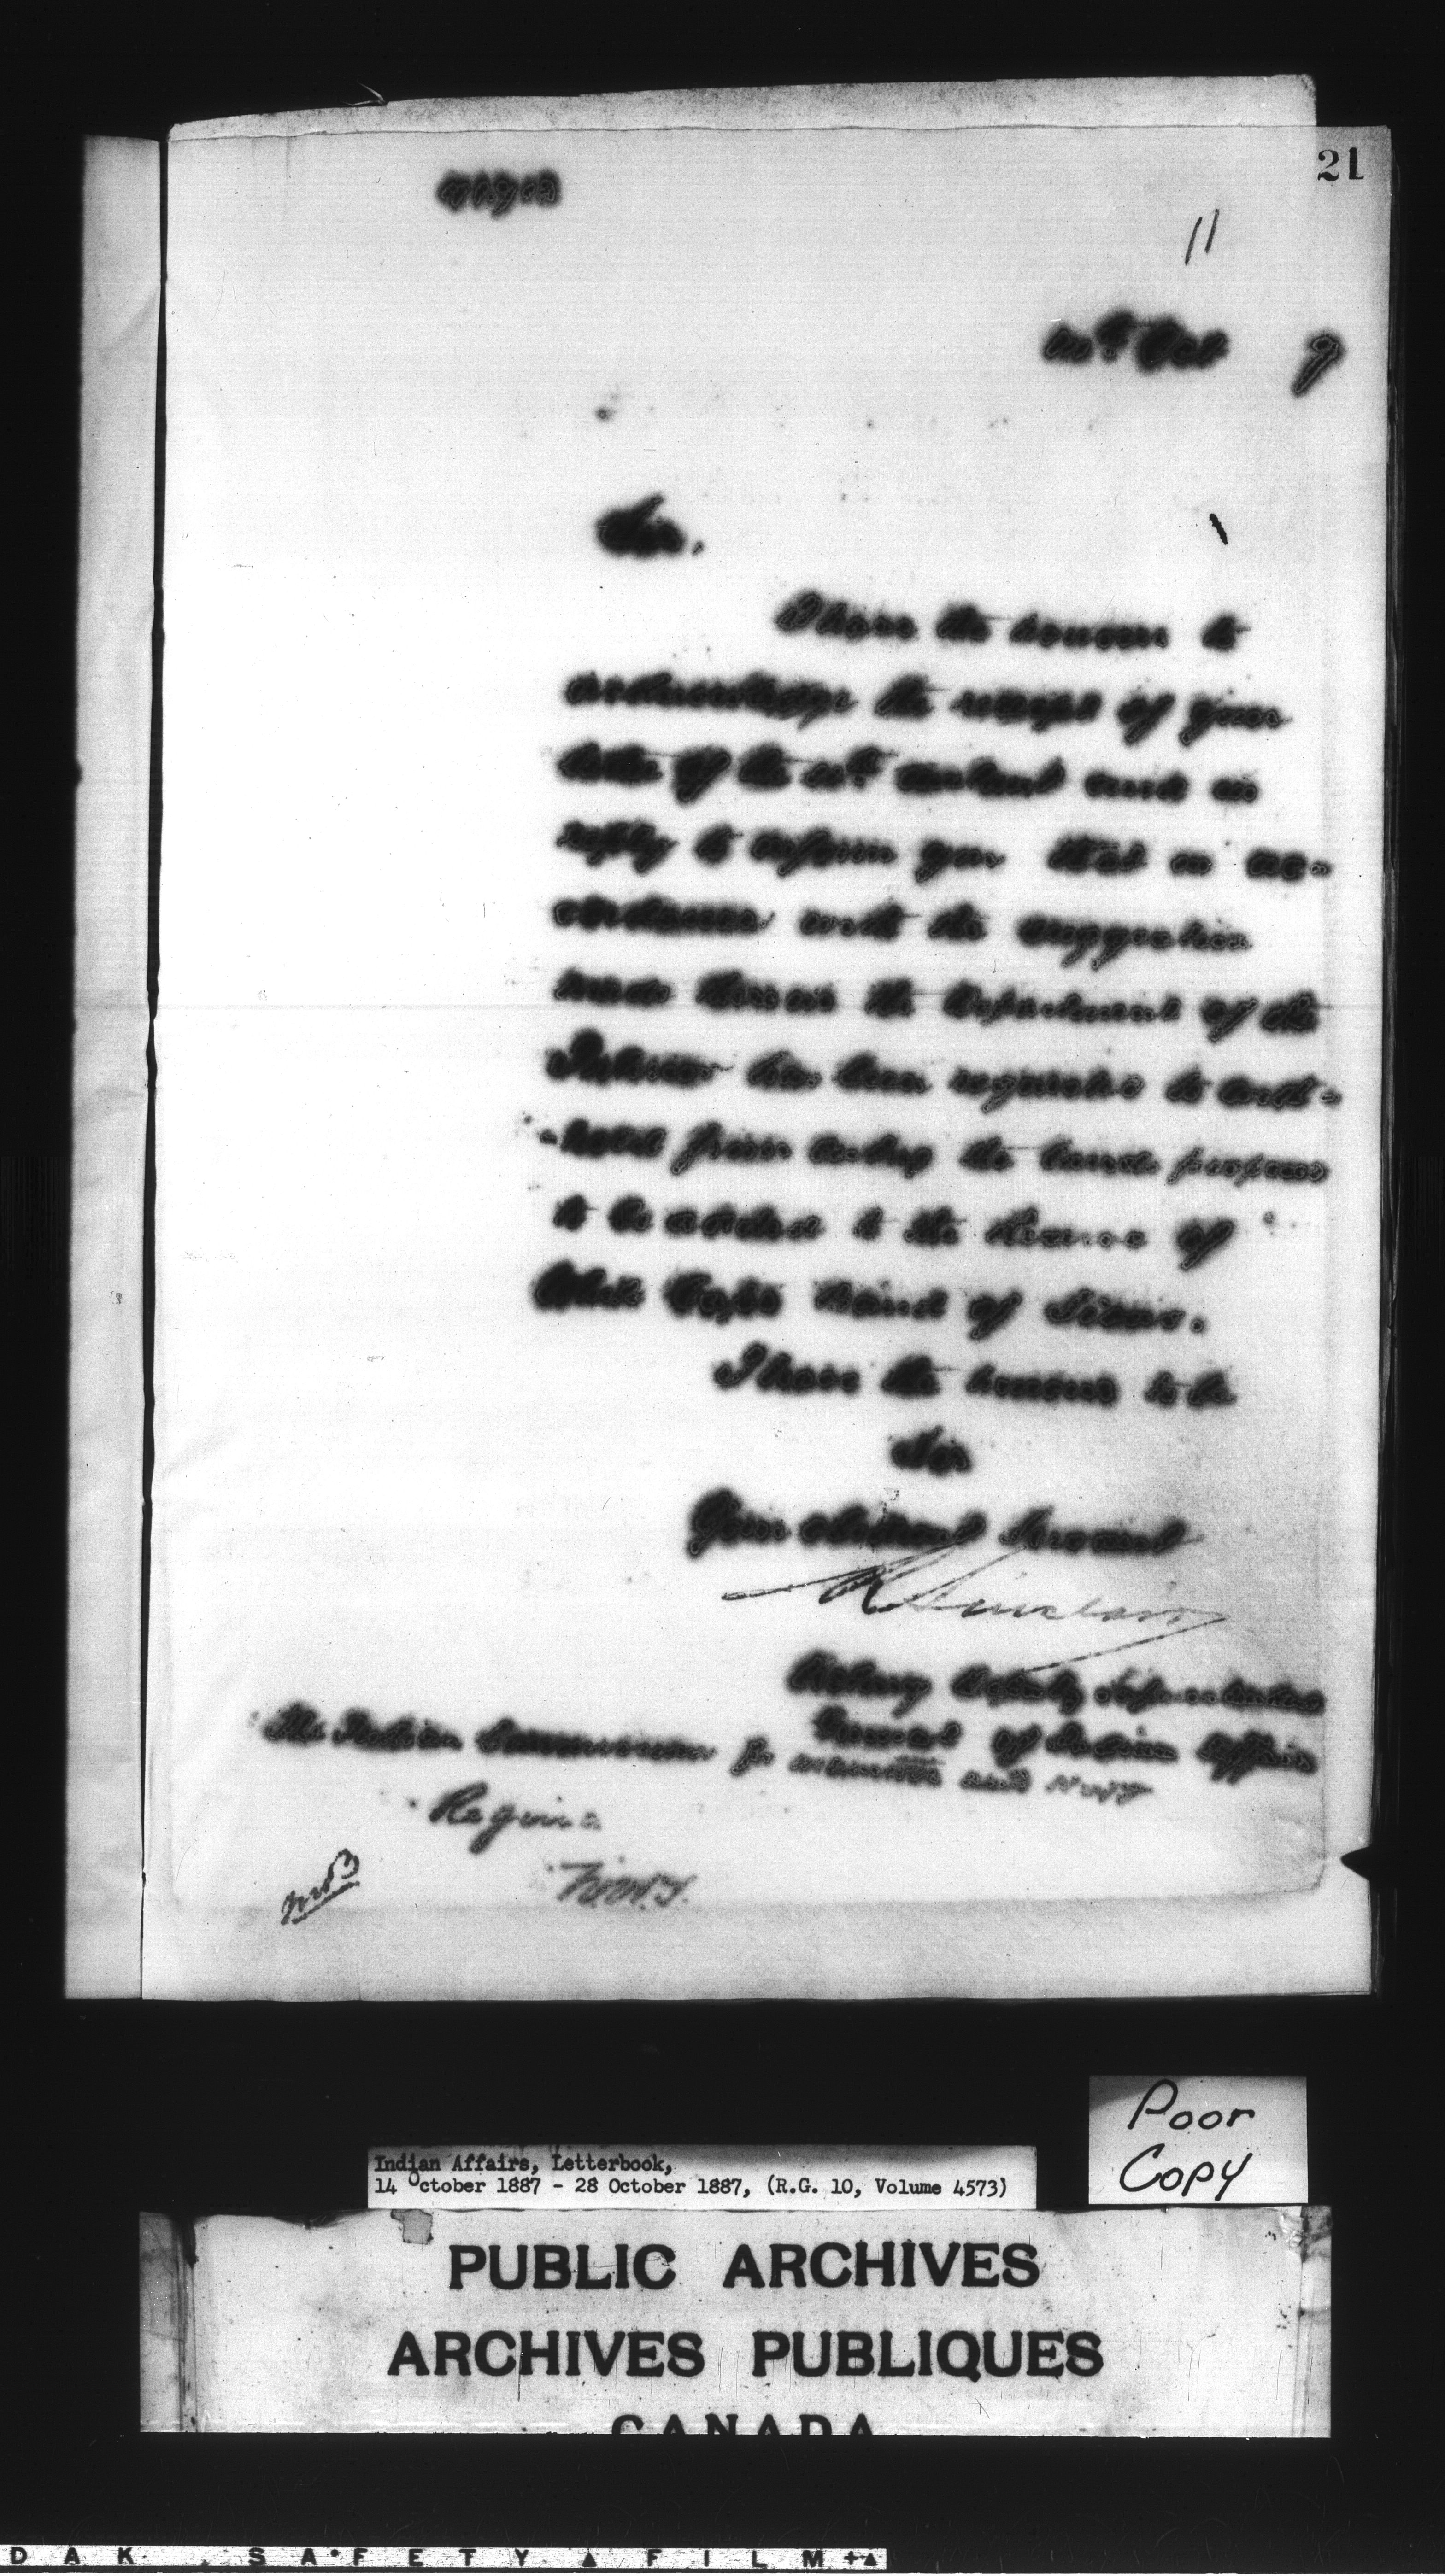 21
11
Oct 7
Sir,
I have the honour to
acknowledge the receipt of your
letter of the instant and in
reply to inform you that in ac-
cordance with the suggestion
made therein the Department of the
Interior has been requested to with-
-hold from entry the lands proposed
to be added to the Reserve of
White Cap's band of Sioux.
I have the honour to be
Sir
Your obedient Servant
R Sinclair
Acting Deputy Superintendent
General of Indian Affairs
The Indian Commissioner for Manitoba and N.W.T
Regina
N.W.T.
Poor
Copy
Indian Affairs, Letterbook,
14 October 1887 - 28 October 1887, (R.G. 10, Volume 4573)
PUBLIC ARCHIVES
ARCHIVES PUBLIQUES
CANADA
DAK SAFETY FILM